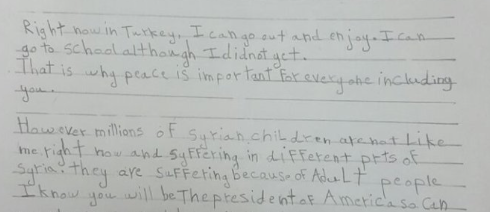 Right now in Turkey, I can go out and enjoy. I can
go to school although I didnot yet.
That is why peace is important for everyone including
you.
However millions of syrian children are not like
me right now and syffering in different prts of
syria. they are suffering because of Adult people
I know you will be The president of America so can